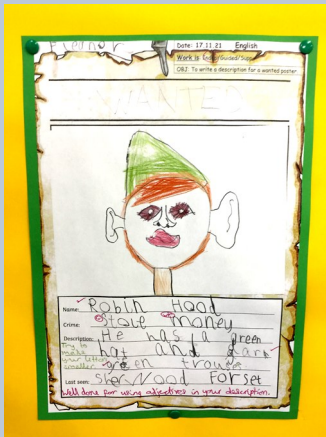 Date: 17.11.21 English
Work is Indep/Guided/Supp
OBJ: To write a description for a wanted poster
WANTED
Name: Robin Hood
Crime: Stole money
Description: He has a green
hat and dark
green trous
Try to make your letters smaller
Last seen: SherNood Forset
Well done for using adjectives in your description.